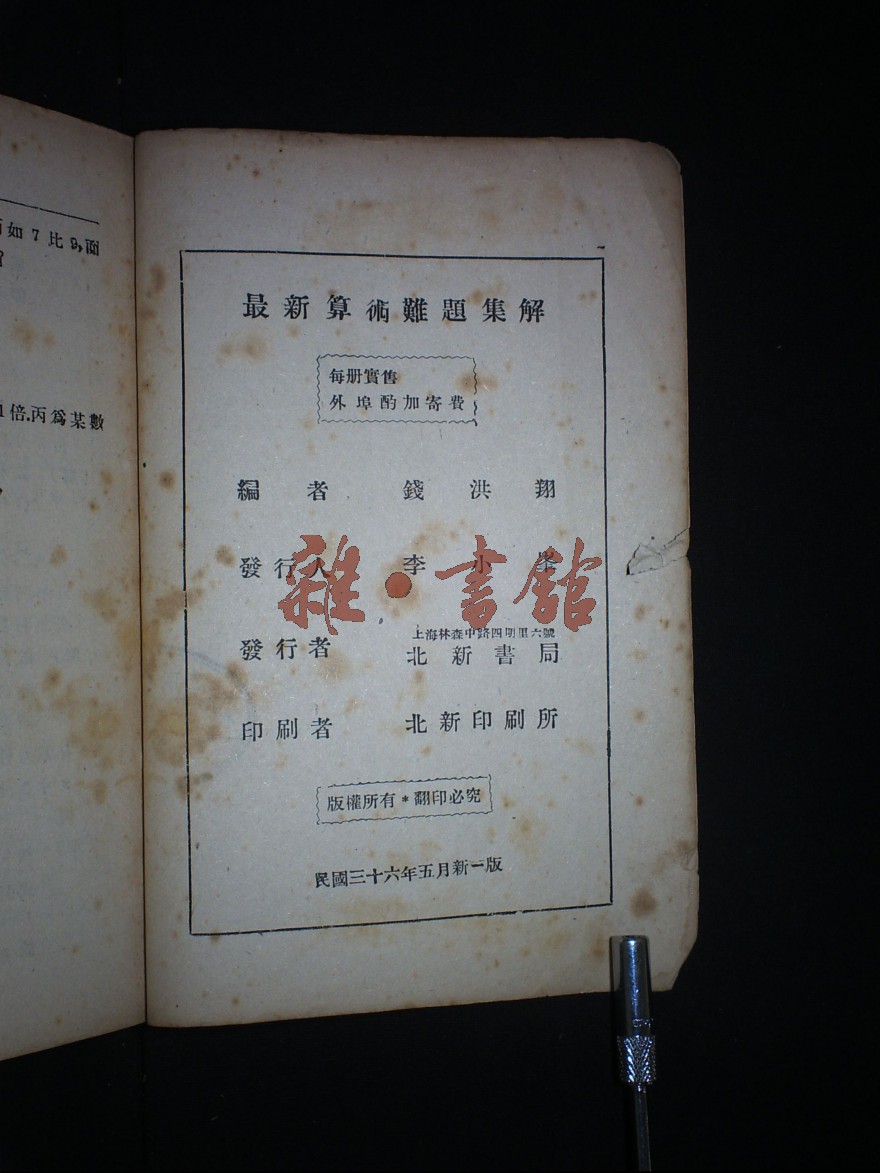 如7比9,面
1倍.丙爲某數
最新算術難題集解
每册實售
外埠酌加寄費
編者 錢洪翔
發行人 李小峯
發行者 上海林森中路四明里六號
北新書局
印刷者 北新印刷所
版權所有*翻印必究
民國三十六年五月新一版
雜·書館